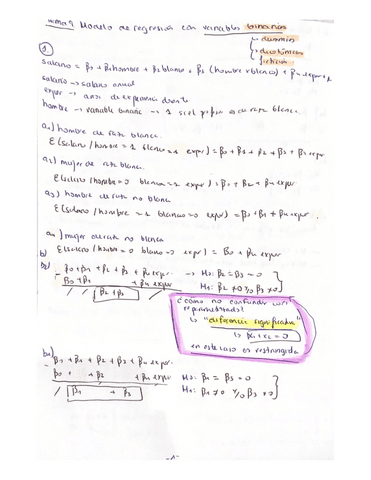 Modelo de regresión con variables binarias
↳ dummies
↳ dicotómicas
↳ ficticias
1.
salario = β0 + β1 hombre + β2 blanco + β3 (hombre x blanco) + β4 exper + u
salario → salario anual
exper → años de experiencia docente
hombre → variable binaria → 1 si el profesor es de raza blanca
a1) hombre de raza blanca.
E(salario/hombre = 1 blanco = 1 exper) = β0 + β1 + β2 + β3 + β4 exper
a2) mujer de raza blanca.
E(salario/hombre = 0 blanco = 1 exper) = β0 + β2 + β4 exper
a3) hombre de raza no blanca
E(salario/hombre = 1 blanco = 0 exper) = β0 + β1 + β4 exper.
a4) mujer de raza no blanca
E(salario/hombre = 0 blanco = 0 exper) = β0 + β4 exper
b)
β0 + β1 + β2 + β3 + β4 exper → H0: β2 = β3 = 0
β0 + β1 + β4 exper H1: β2 ≠ 0 y/o β3 ≠ 0
/ / β2 + β3 /
¿cómo no confundir con
↳ "diferencia significativa"
en este caso es restringida
β0 + β1 + β2 + β3 + β4 exper.
β0 + β2 + β4 exper H0: β1 = β3 = 0
/ β1 + β3 / H1: β1 ≠ 0 y/o β3 ≠ 0